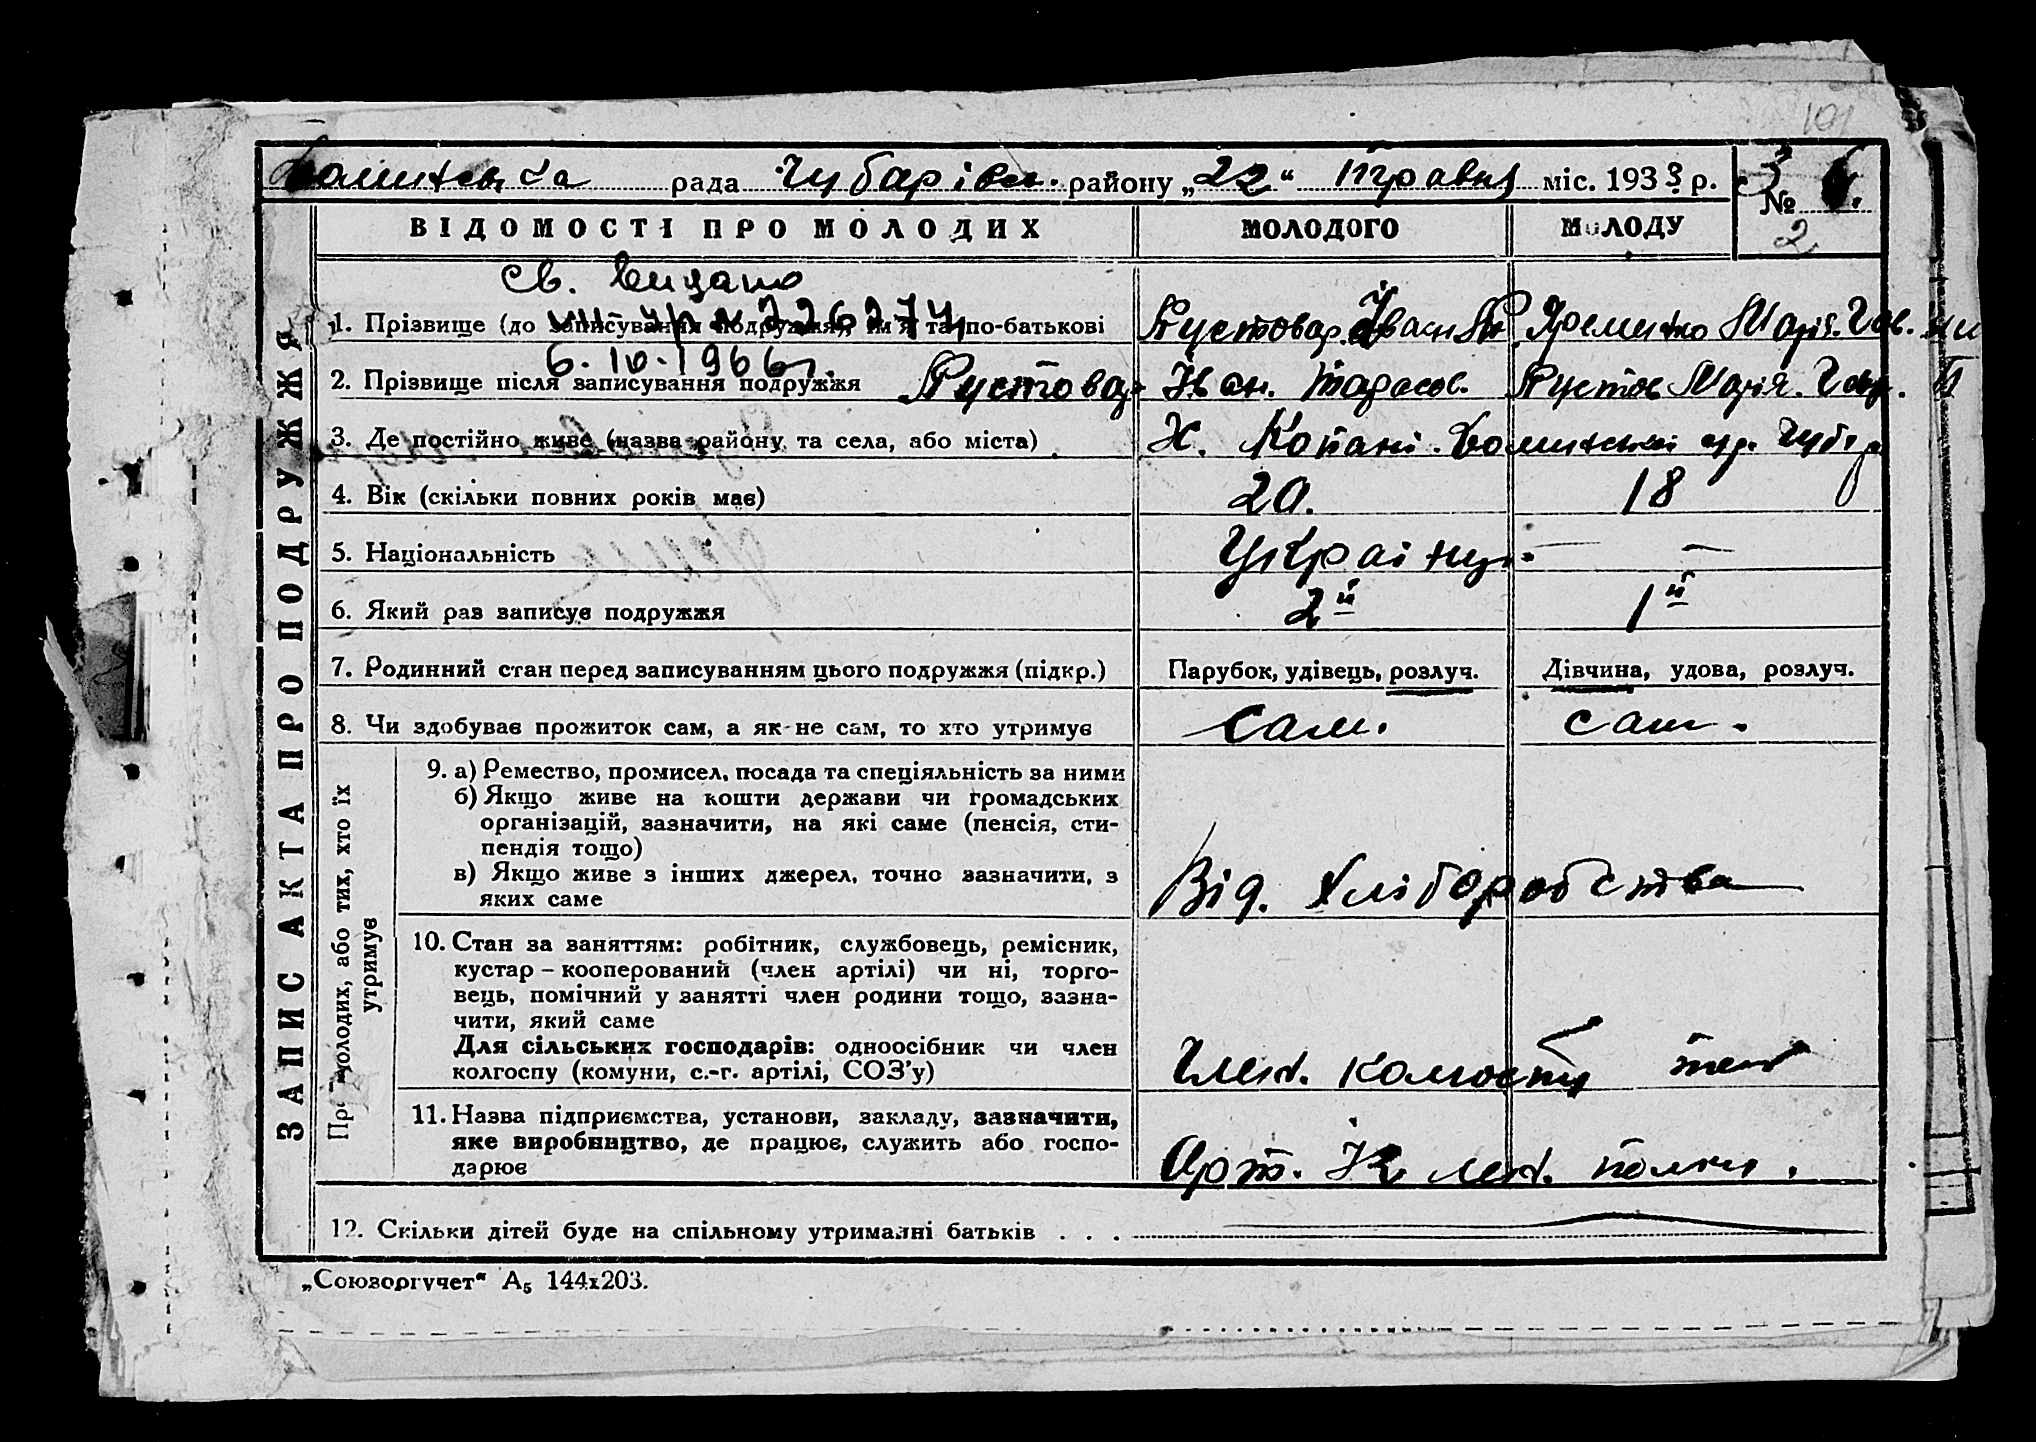 рада Чубарівск. району „22“ Травня міс. 1933 р.
3
№ 2
ВІДОМОСТІ ПРО МОЛОДИХ МОЛОДОГО МОЛОДУ
ЗАПИС АКТА ПРО ПОДРУЖЖЯ
Св. видано
VIII-УР № 226274
6.10.1966г.
1. Прізвище (до записування подружжя), ім'я та по-батькові Пустовар. Іван Яременко Марія. Гав.
2. Прізвище після записування подружжя Пустовар Іван. Тарасов. Пустов Марія. Гавр.
3. Де постійно живе (назва району та села, або міста) Х. Копані
4. Вік (скільки повних років має) 20. 18
5. Національність Українц. — —
6. Який раз записує подружжя 2й 1й
7. Родинний стан перед записуванням цього подружжя (підкр.) Парубок, удівець, розлуч. Дівчина, удова, розлуч.
8. Чи здобуває прожиток сам, а як-не сам, то хто утримує Сам. сам.
Про молодих, або тих, хто їх
утримує
9. а) Ремество, промисел, посада та спеціяльність за ними
б) Якщо живе на кошти держави чи громадських
організацій, зазначити, на які саме (пенсія, сти-
пендія тощо)
в) Якщо живе з інших джерел, точно зазначити, з
яких саме
Від. Хліборобства
10. Стан за заняттям: робітник, службовець, ремісник,
кустар – кооперований (член артілі) чи ні, торго-
вець, помічний у занятті член родини тощо, зазна-
чити, який саме
Для сільських господарів: одноосібник чи член
колгоспу (комуни, с.-г. артілі, СОЗ'у)
Член. колгоспу
11. Назва підприємства, установи, закладу, зазначити,
яке виробництво, де працює, служить або госпо-
дарює
Арт.
12. Скільки дітей буде на спільному утриманні батьків . . .
„Союзоргучет“ А5 144x203.